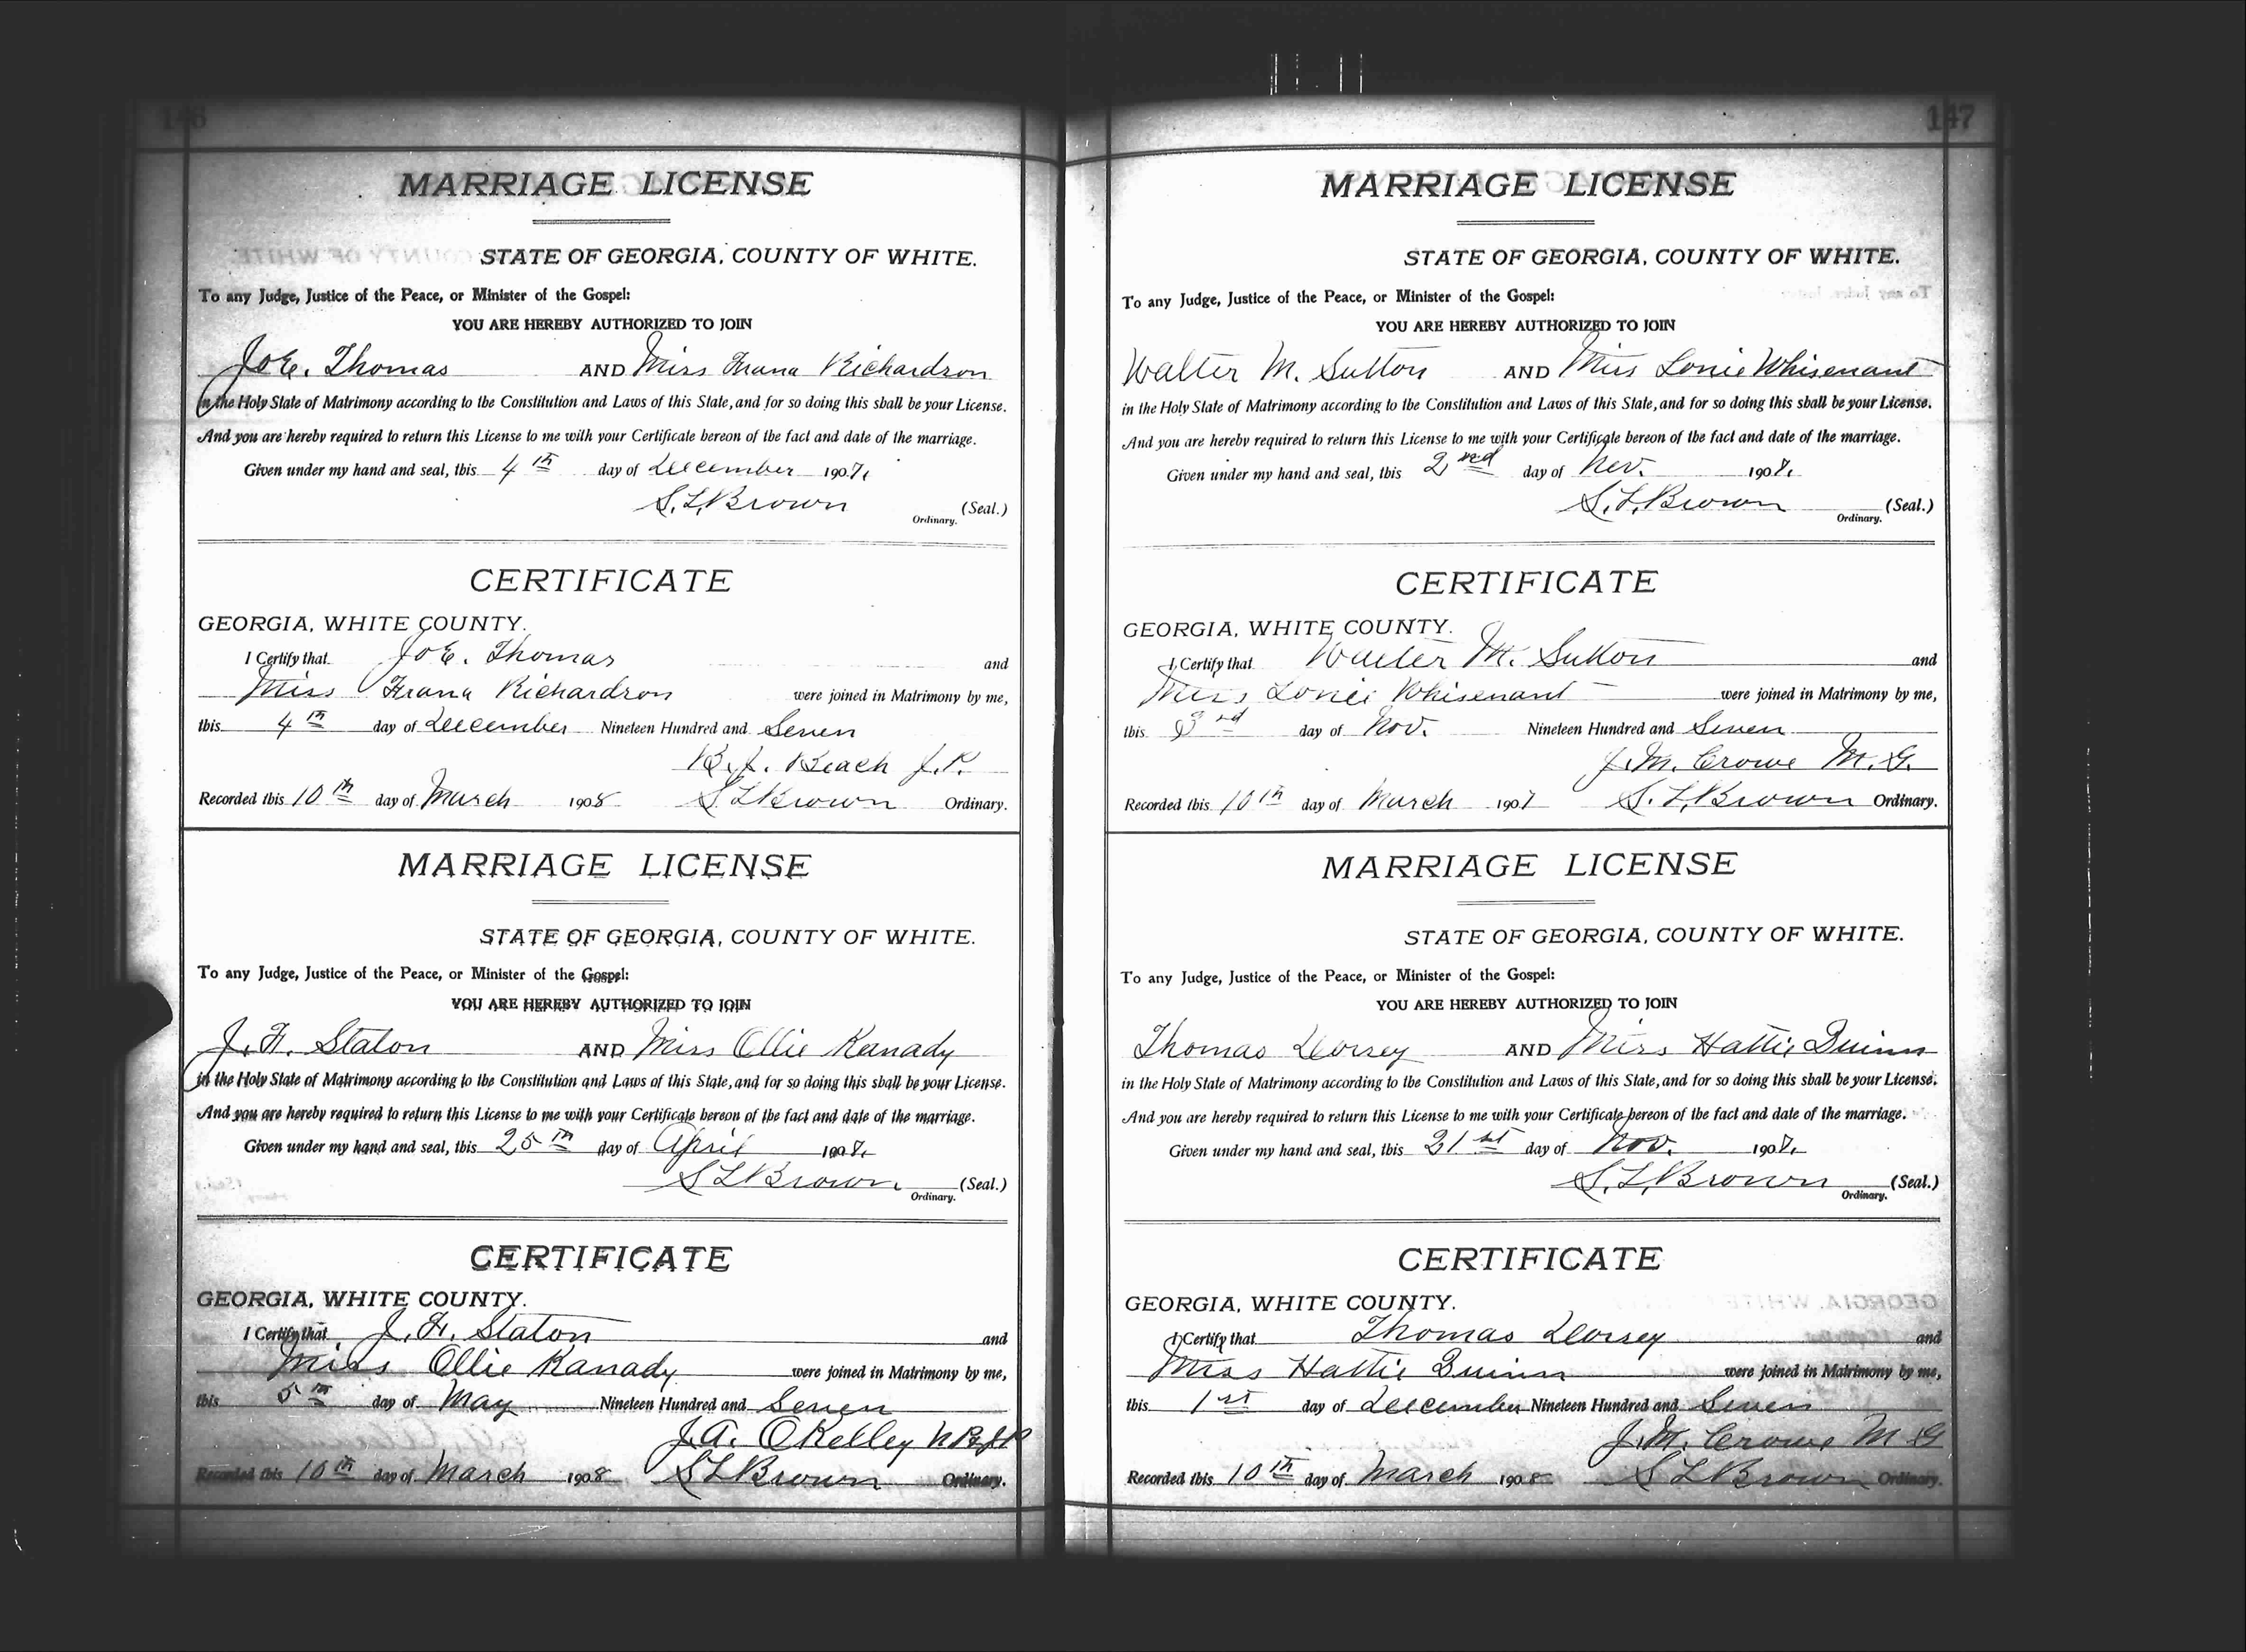 146
MARRIAGE LICENSE
STATE OF GEORGIA, COUNTY OF WHITE.
To any Judge, Justice of the Peace, or Minister of the Gospel:
YOU ARE HEREBY AUTHORIZED TO JOIN
Joe. Thomas AND Miss Frana Richardson
in the Holy State of Matrimony according to the Constitution and Laws of this State, and for so doing this shall be your License.
And you are hereby required to return this License to me with your Certificate hereon of the fact and date of the marriage.
Given under my hand and seal, this 4th day of December 1907.
S.L. Brown (Seal.)
Ordinary.
CERTIFICATE
GEORGIA, WHITE COUNTY.
I Certify that Joe. Thomas and
Miss Frana Richardson were joined in Matrimony by me,
this 4th day of December Nineteen Hundred and Seven
B.J. Beach J.P.
Recorded this 10th day of March 1908 S L Brown Ordinary.
MARRIAGE LICENSE
STATE OF GEORGIA, COUNTY OF WHITE.
To any Judge, Justice of the Peace, or Minister of the Gospel:
YOU ARE HEREBY AUTHORIZED TO JOIN
J. F. Staton AND Miss Ollie Kanady
in the Holy State of Matrimony according to the Constitution and Laws of this State, and for so doing this shall be your License.
And you are hereby required to return this License to me with your Certificate hereon of the fact and date of the marriage.
Given under my hand and seal, this 25th day of April 1907.
S L Brown (Seal.)
Ordinary.
CERTIFICATE
GEORGIA, WHITE COUNTY.
I Certify that J. F. Staton and
Miss Ollie Kanady were joined in Matrimony by me,
this 5th day of May Nineteen Hundred and Seven
J.A. OKelley N P & J P
Recorded this 10th day of March 1908 S L Brown Ordinary.
147
MARRIAGE LICENSE
STATE OF GEORGIA, COUNTY OF WHITE.
To any Judge, Justice of the Peace, or Minister of the Gospel:
YOU ARE HEREBY AUTHORIZED TO JOIN
Walter M. Sutton AND Miss Lonie Whisenant
in the Holy State of Matrimony according to the Constitution and Laws of this State, and for so doing this shall be your License.
And you are hereby required to return this License to me with your Certificate hereon of the fact and date of the marriage.
Given under my hand and seal, this 2nd day of Nov. 1907.
S. L. Brown (Seal.)
Ordinary.
CERTIFICATE
GEORGIA, WHITE COUNTY.
I Certify that Walter M. Sutton and
Miss Lonie Whisenant were joined in Matrimony by me,
this 3rd day of Nov. Nineteen Hundred and Seven
J.M. Crowe M.G.
Recorded this 10th day of March 1907 S. L. Brown Ordinary.
MARRIAGE LICENSE
STATE OF GEORGIA, COUNTY OF WHITE.
To any Judge, Justice of the Peace, or Minister of the Gospel:
YOU ARE HEREBY AUTHORIZED TO JOIN
Thomas Dorsey AND Miss Hattie Quinn
in the Holy State of Matrimony according to the Constitution and Laws of this State, and for so doing this shall be your License.
And you are hereby required to return this License to me with your Certificate hereon of the fact and date of the marriage.
Given under my hand and seal, this 21st day of Nov. 1907.
S. L. Brown (Seal.)
Ordinary.
CERTIFICATE
GEORGIA, WHITE COUNTY.
I Certify that Thomas Dorsey and
Miss Hattie Quinn were joined in Matrimony by me,
this 1st day of December Nineteen Hundred and Seven
J.M. Crowe M G
Recorded this 10th day of March 1908 S L Brown Ordinary.